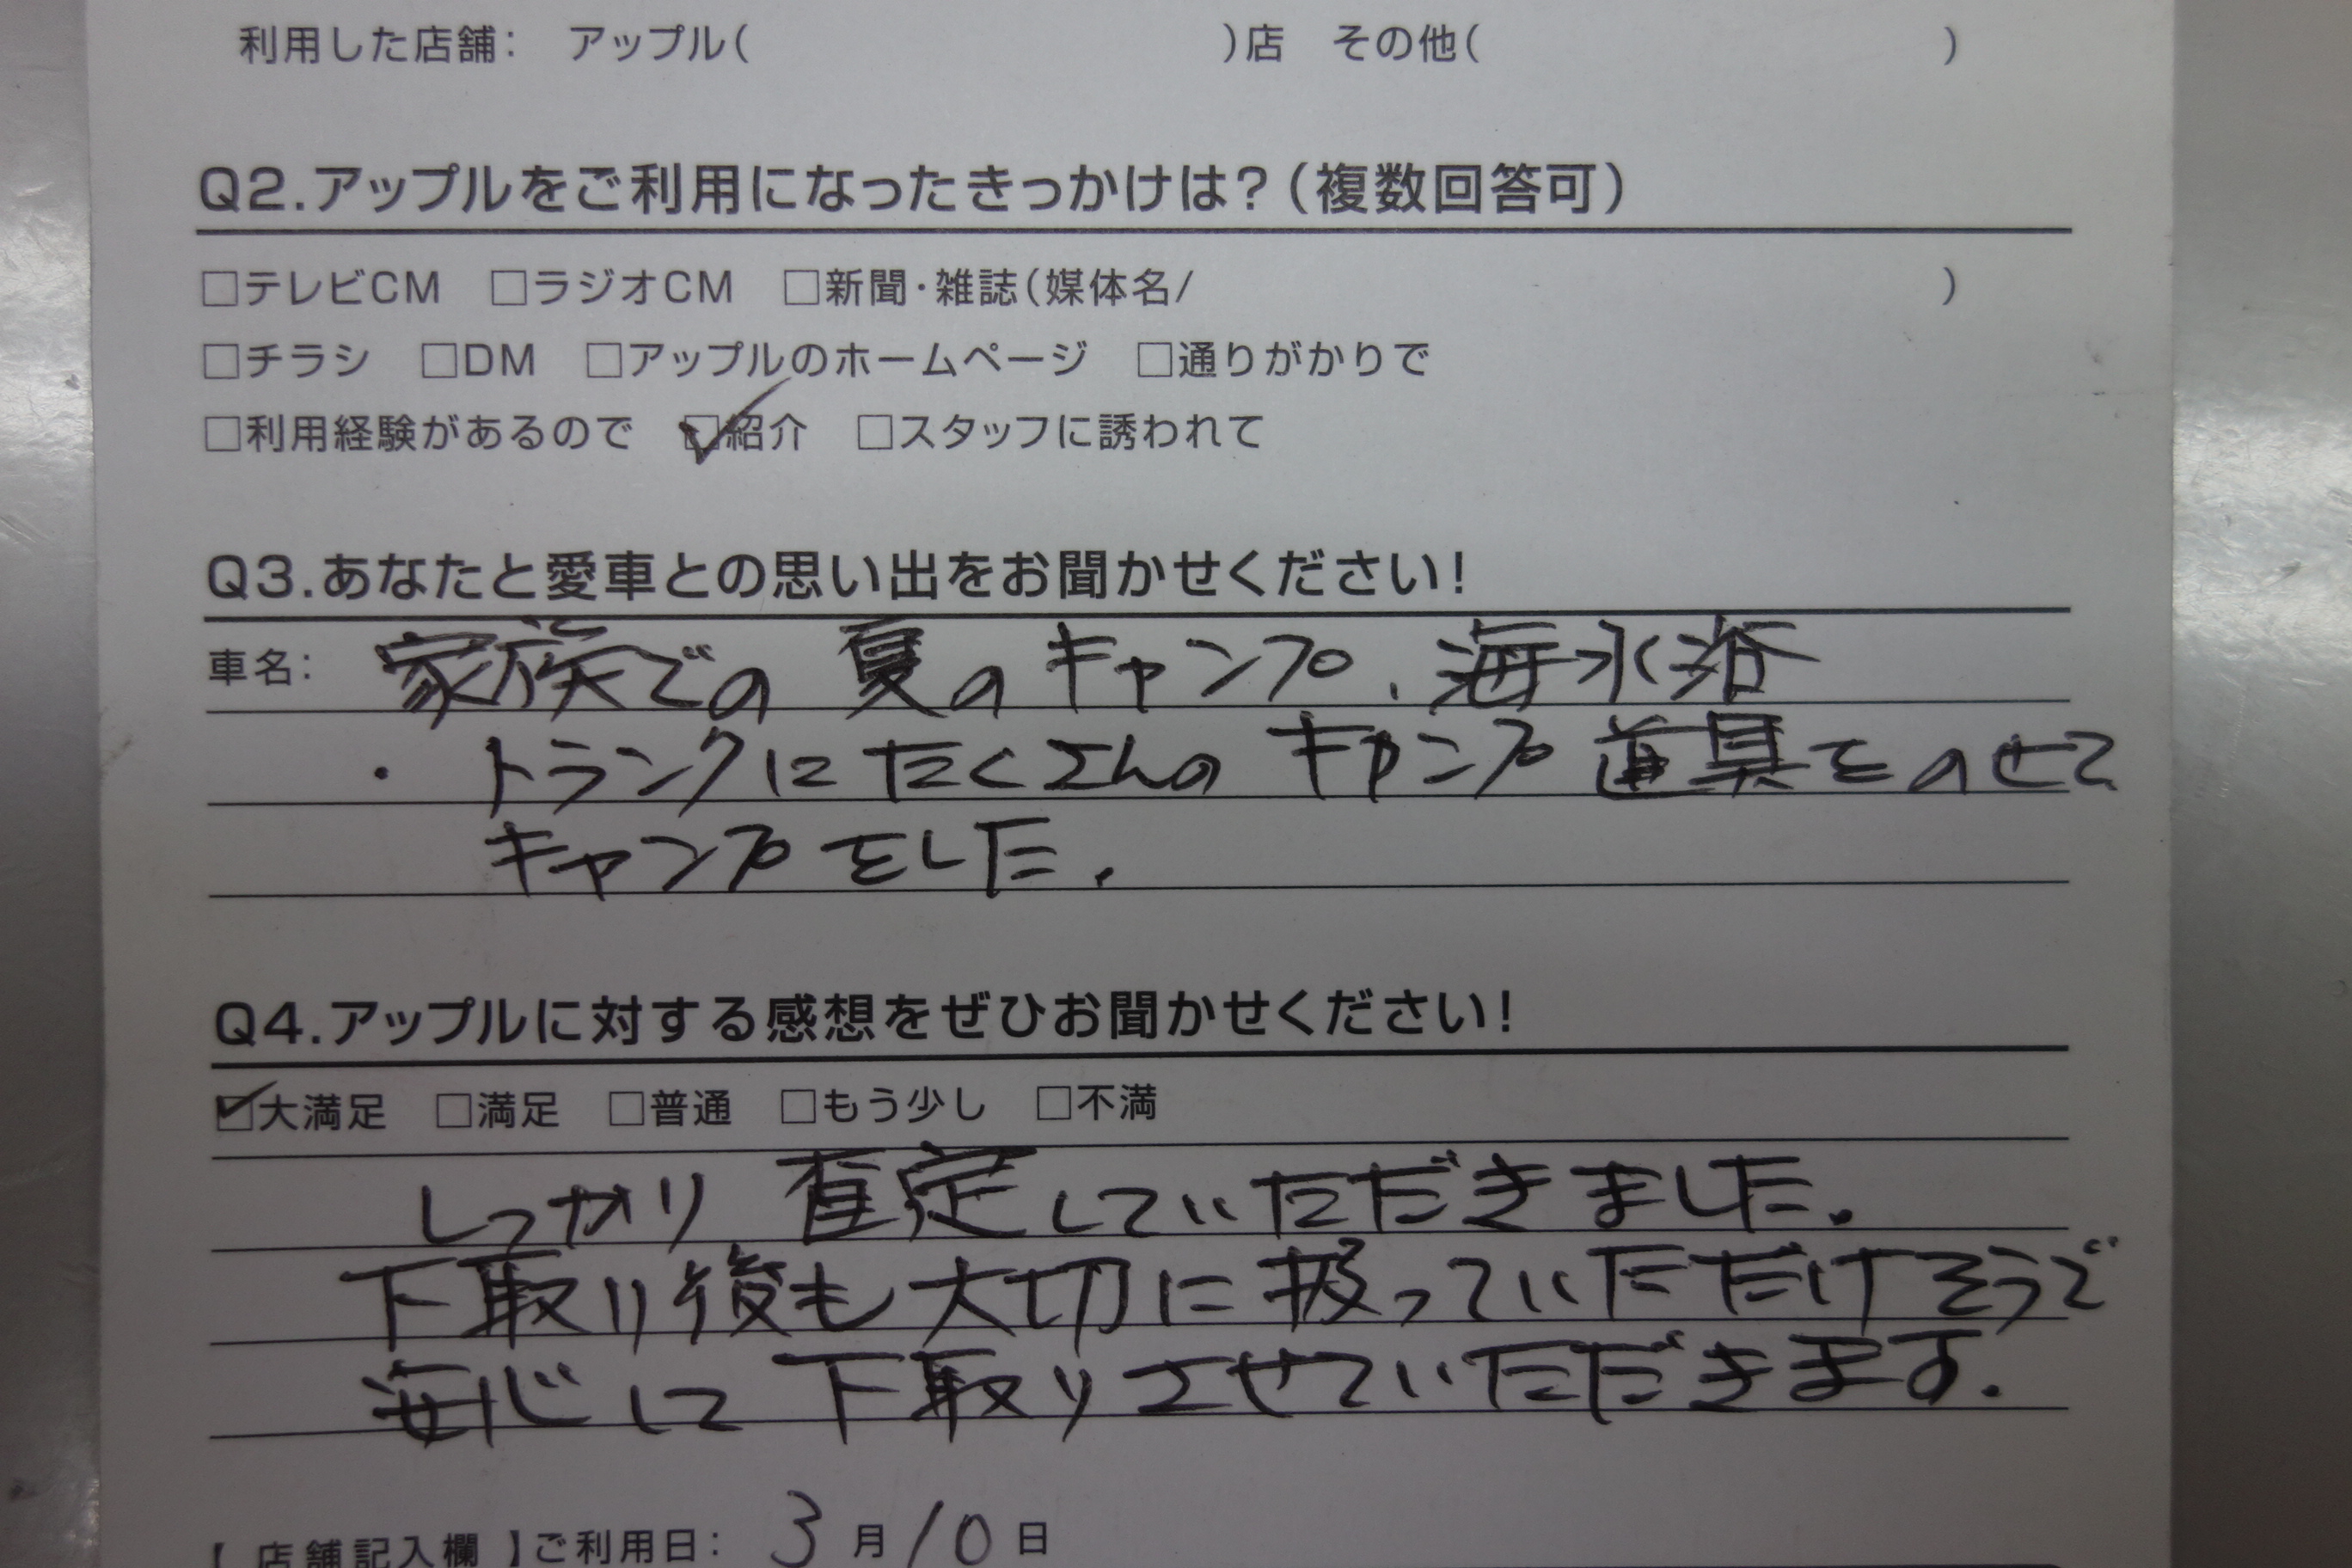 利用した店舗： アップル（ ）店 その他（ ）
Q2.アップルをご利用になったきっかけは？（複数回答可）
□テレビCM □ラジオCM □新聞・雑誌（媒体名/ ）
□チラシ □DM □アップルのホームページ □通りがかりで
□利用経験があるので ☑紹介 □スタッフに誘われて
Q3.あなたと愛車との思い出をお聞かせください！
車名： 家族での 夏のキャンプ、海水浴
・ トランクにたくさんのキャンプ道具をのせて
キャンプをした.
Q4.アップルに対する感想をぜひお聞かせください！
☑大満足 □満足 □普通 □もう少し □不満
しっかり査定していただきました.
下取り後も大切に扱っていただけそうで
に下取りさせていただきます.
【 店舗記入欄 】ご利用日： 3月10日